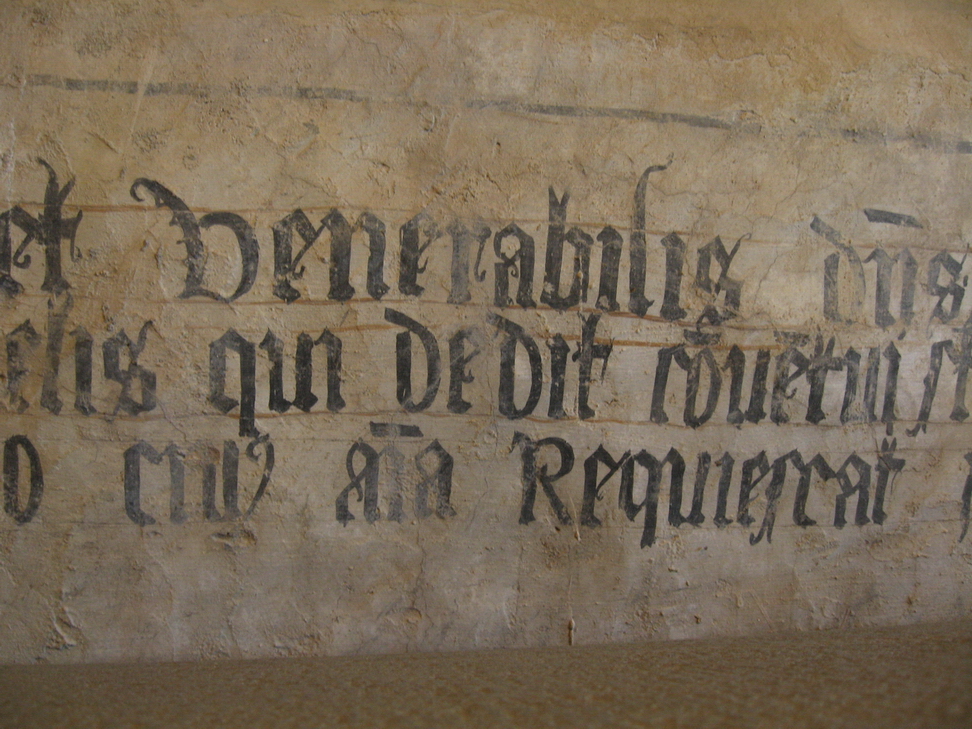 et Venerabilis dn̄s
elis qui dedit cōuētui
o cuiꝰ aīa Requiescat